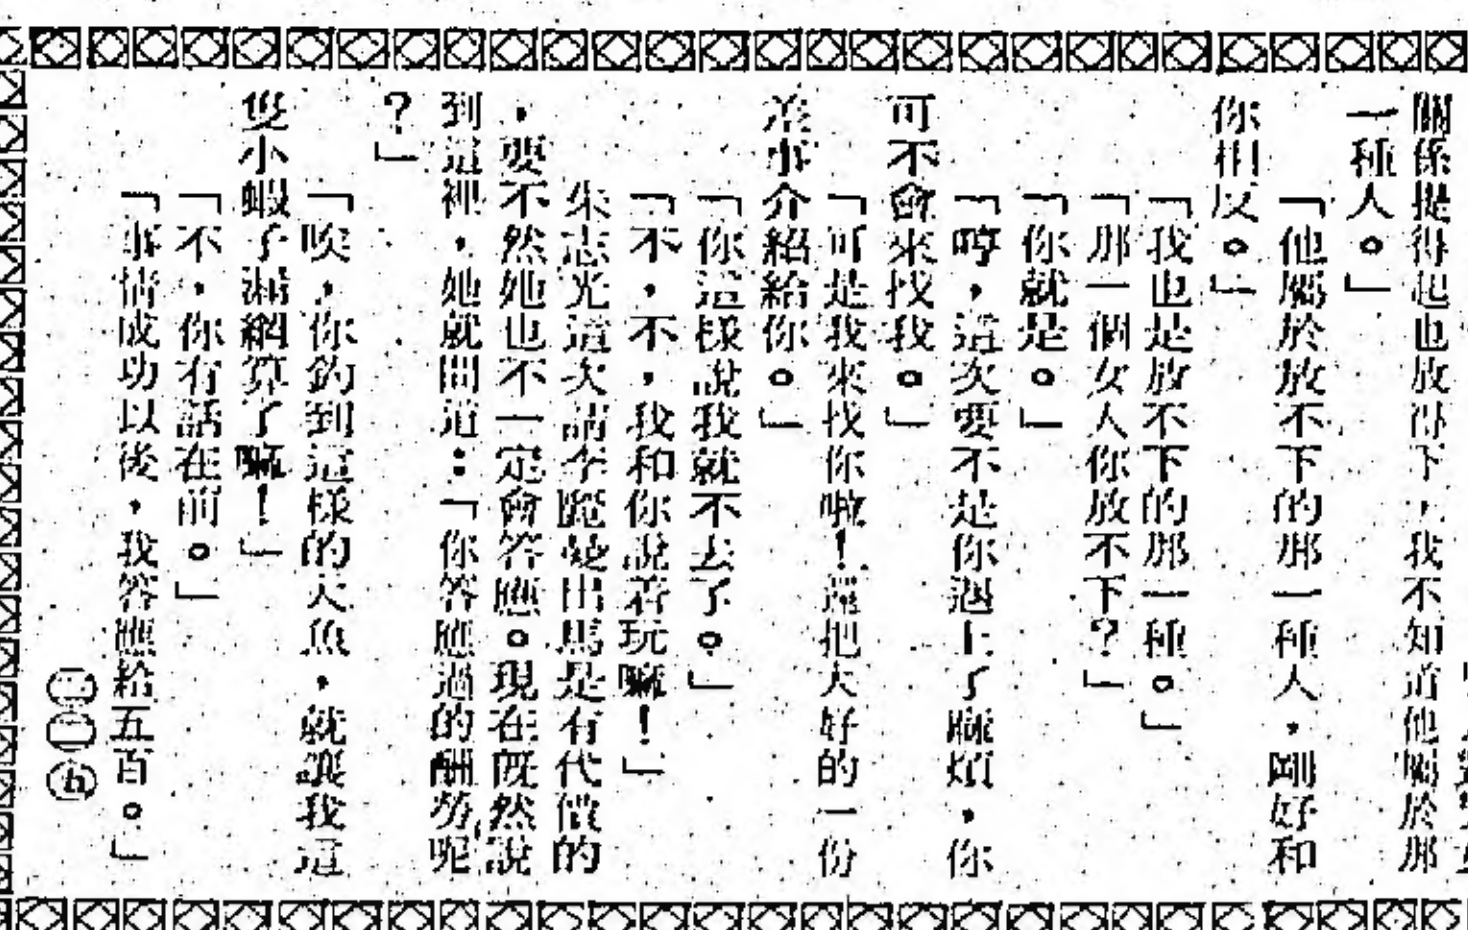 關係提得起也放得下，我不知道他屬於那
一種人。」
「他屬於放不下的那一種人，剛好和
你相反。」
「我也是放不下的那一種。」
「那一個女人你放不下？」
「你就是。」
「哼，這次要不是你遇上了麻煩，你
可不會來找我。」
「可是我來找你啦！還把大好的一份
差事介紹給你。」
「你這樣說我就不去了。」
「不，不，我和你說着玩嘛！」
朱志光這次請李麗曼出馬是有代價的
，要不然她也不一定會答應。現在既然說
到這裡，她就問道：「你答應過的酬勞呢
？」
「唉，你釣到這樣的大魚，就讓我這
隻小蝦子漏網算了嘛！」
「不，你有話在前。」
「事情成功以後，我答應給五百。」